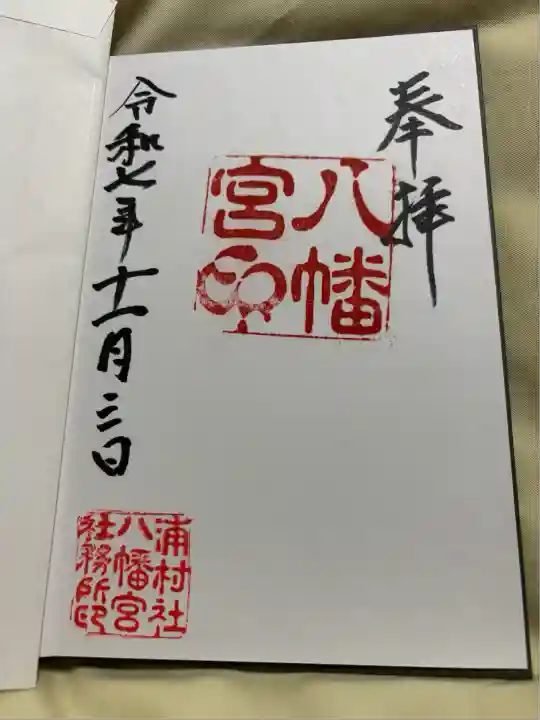 奉拝
八幡
宮印
令和七年十一月三日
浦村社
八幡宮
社務所印